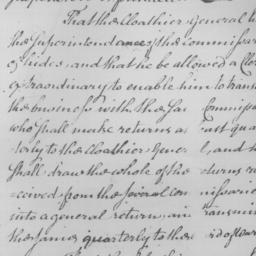 That the Cloathier General
the Superintendance of the commissar
of hides, and that he be allowed a Cler
extraordinary to enable him to trans
the business with the Commissar
who shall make returns quar
terly to the Cloathier Gene l, and
shall draw the whole of the returns re
=ceived from the several Com missaries
into a general return, an transmit
the same quarterly to the rd of war